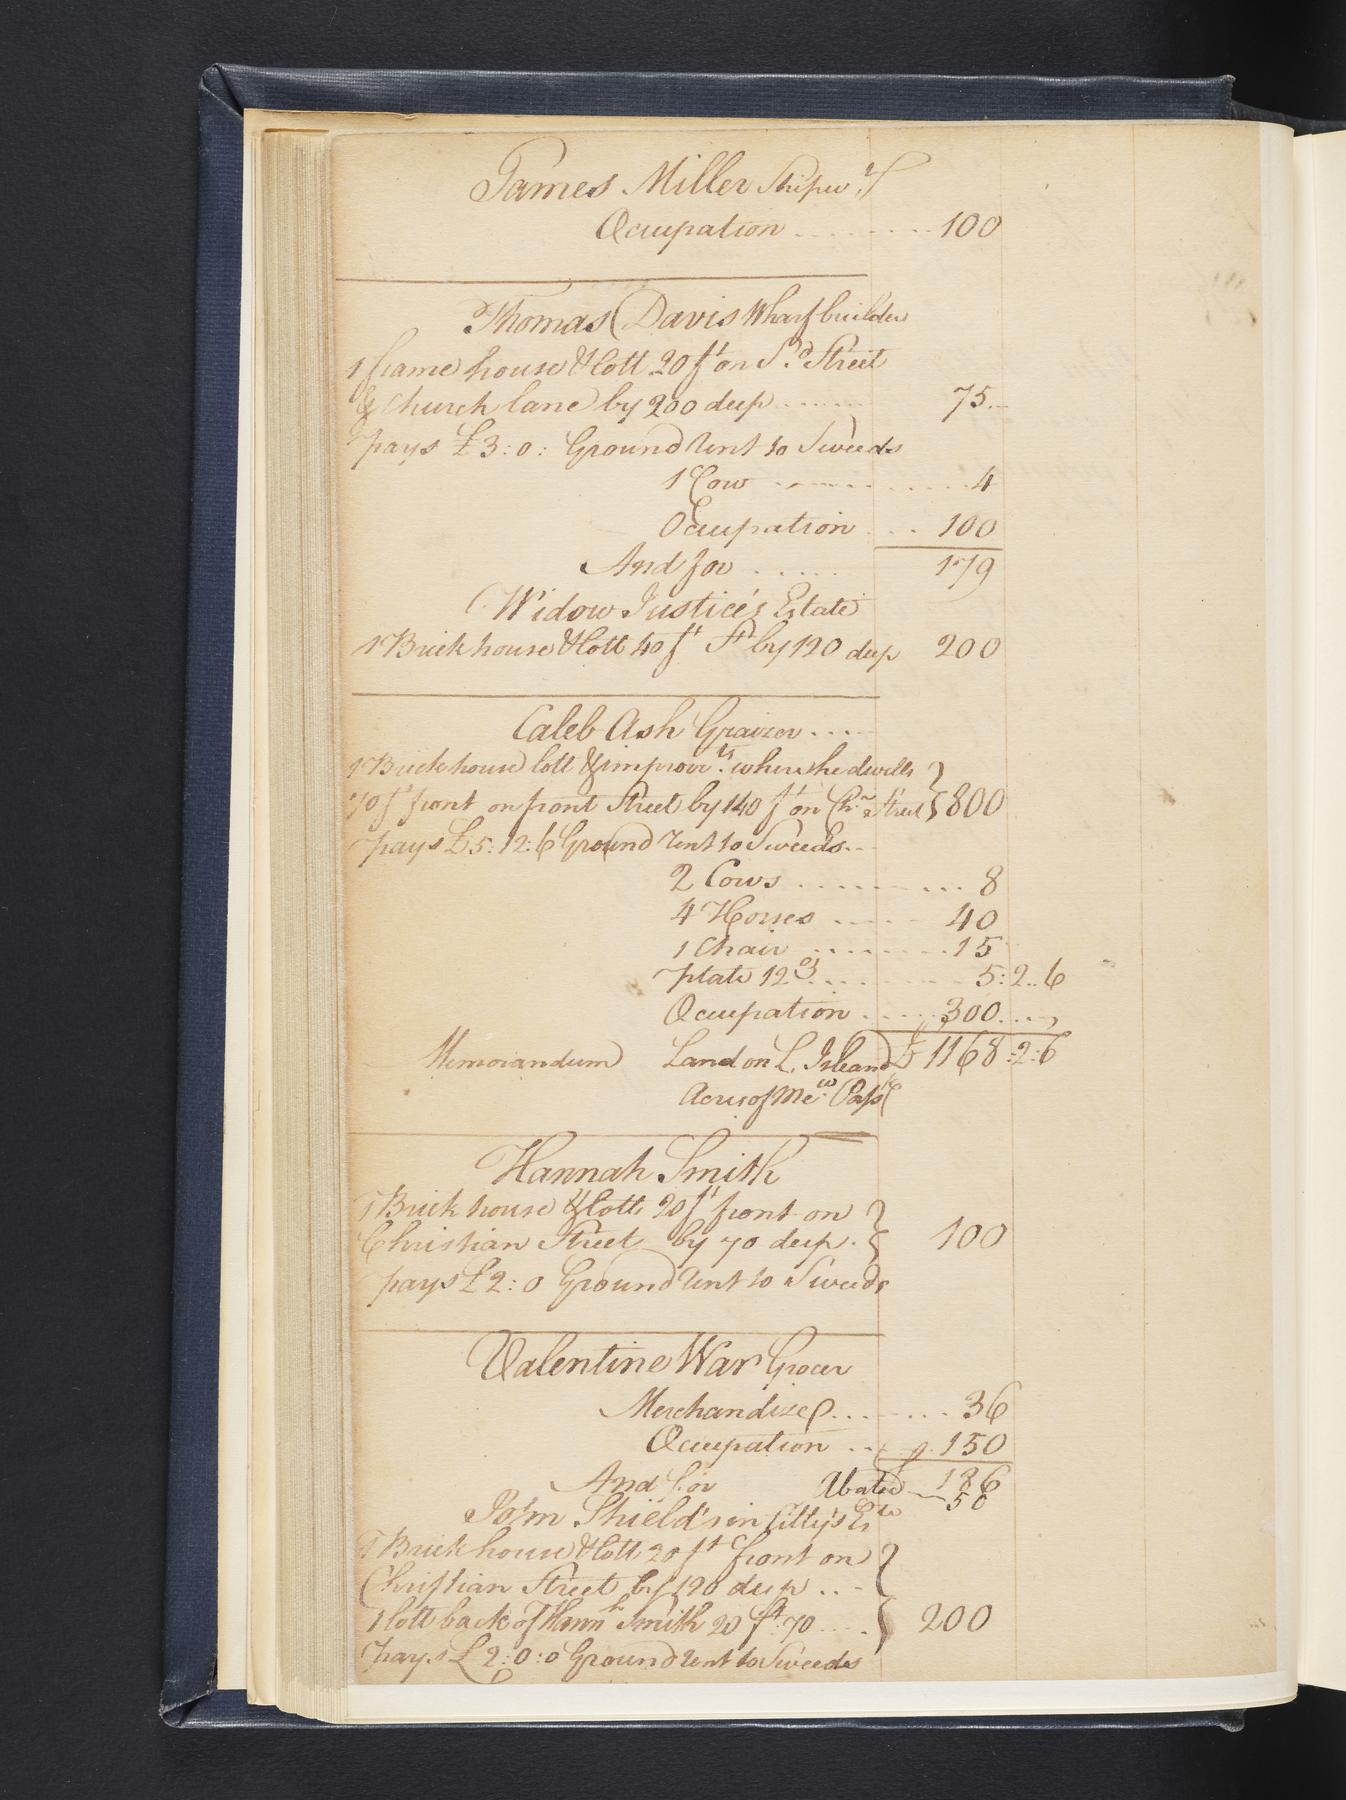 James Miller Shipw.t
Occupation ........ 100
Thomas Davis Wharf builder
1 frame house & lott 20 ft on S.d Street
& Church lane by 200 deep ...... 75..
pays £3:0: Ground Rent to Sweeds
1 Cow ........ 4
Occupation ... 100
And for ..... 179
Widow Justice's Estate
1 Brick house & lott 40 ft by 120 deep 200
Caleb Ash Graizer ....
1 Brick house lott & improv.ts where he dwells
70 ft front on front Street by 140 ft on Chr.n Street 800
pays £5:12:6 Ground Rent to Sweeds...
2 Cows ........ 8
4 Horses ..... 40
1 Chair ........ 15
plate 12 oz ........ 5:2..6
Occupation ..... 300....
Memorandum Land on L. Island £ 1168:2:6
Acres of Me.w
Hannah Smith
1 Brick house & lott 20 ft front on
Christian Street by 70 deep. 100
pays £2:0 Ground Rent to Sweeds
Valentine War Grocer
Merchandize ........ 36
Occupation .. 150
And for Abated 186
50
John Shield's in Citty's Es.te
1 Brick house & lott 20 ft front on
Christian Street by 120 deep ...
1 lott back of Hann.h Smith 20 ft 70 .... 200
pays £2:0:0 Ground Rent to Sweeds